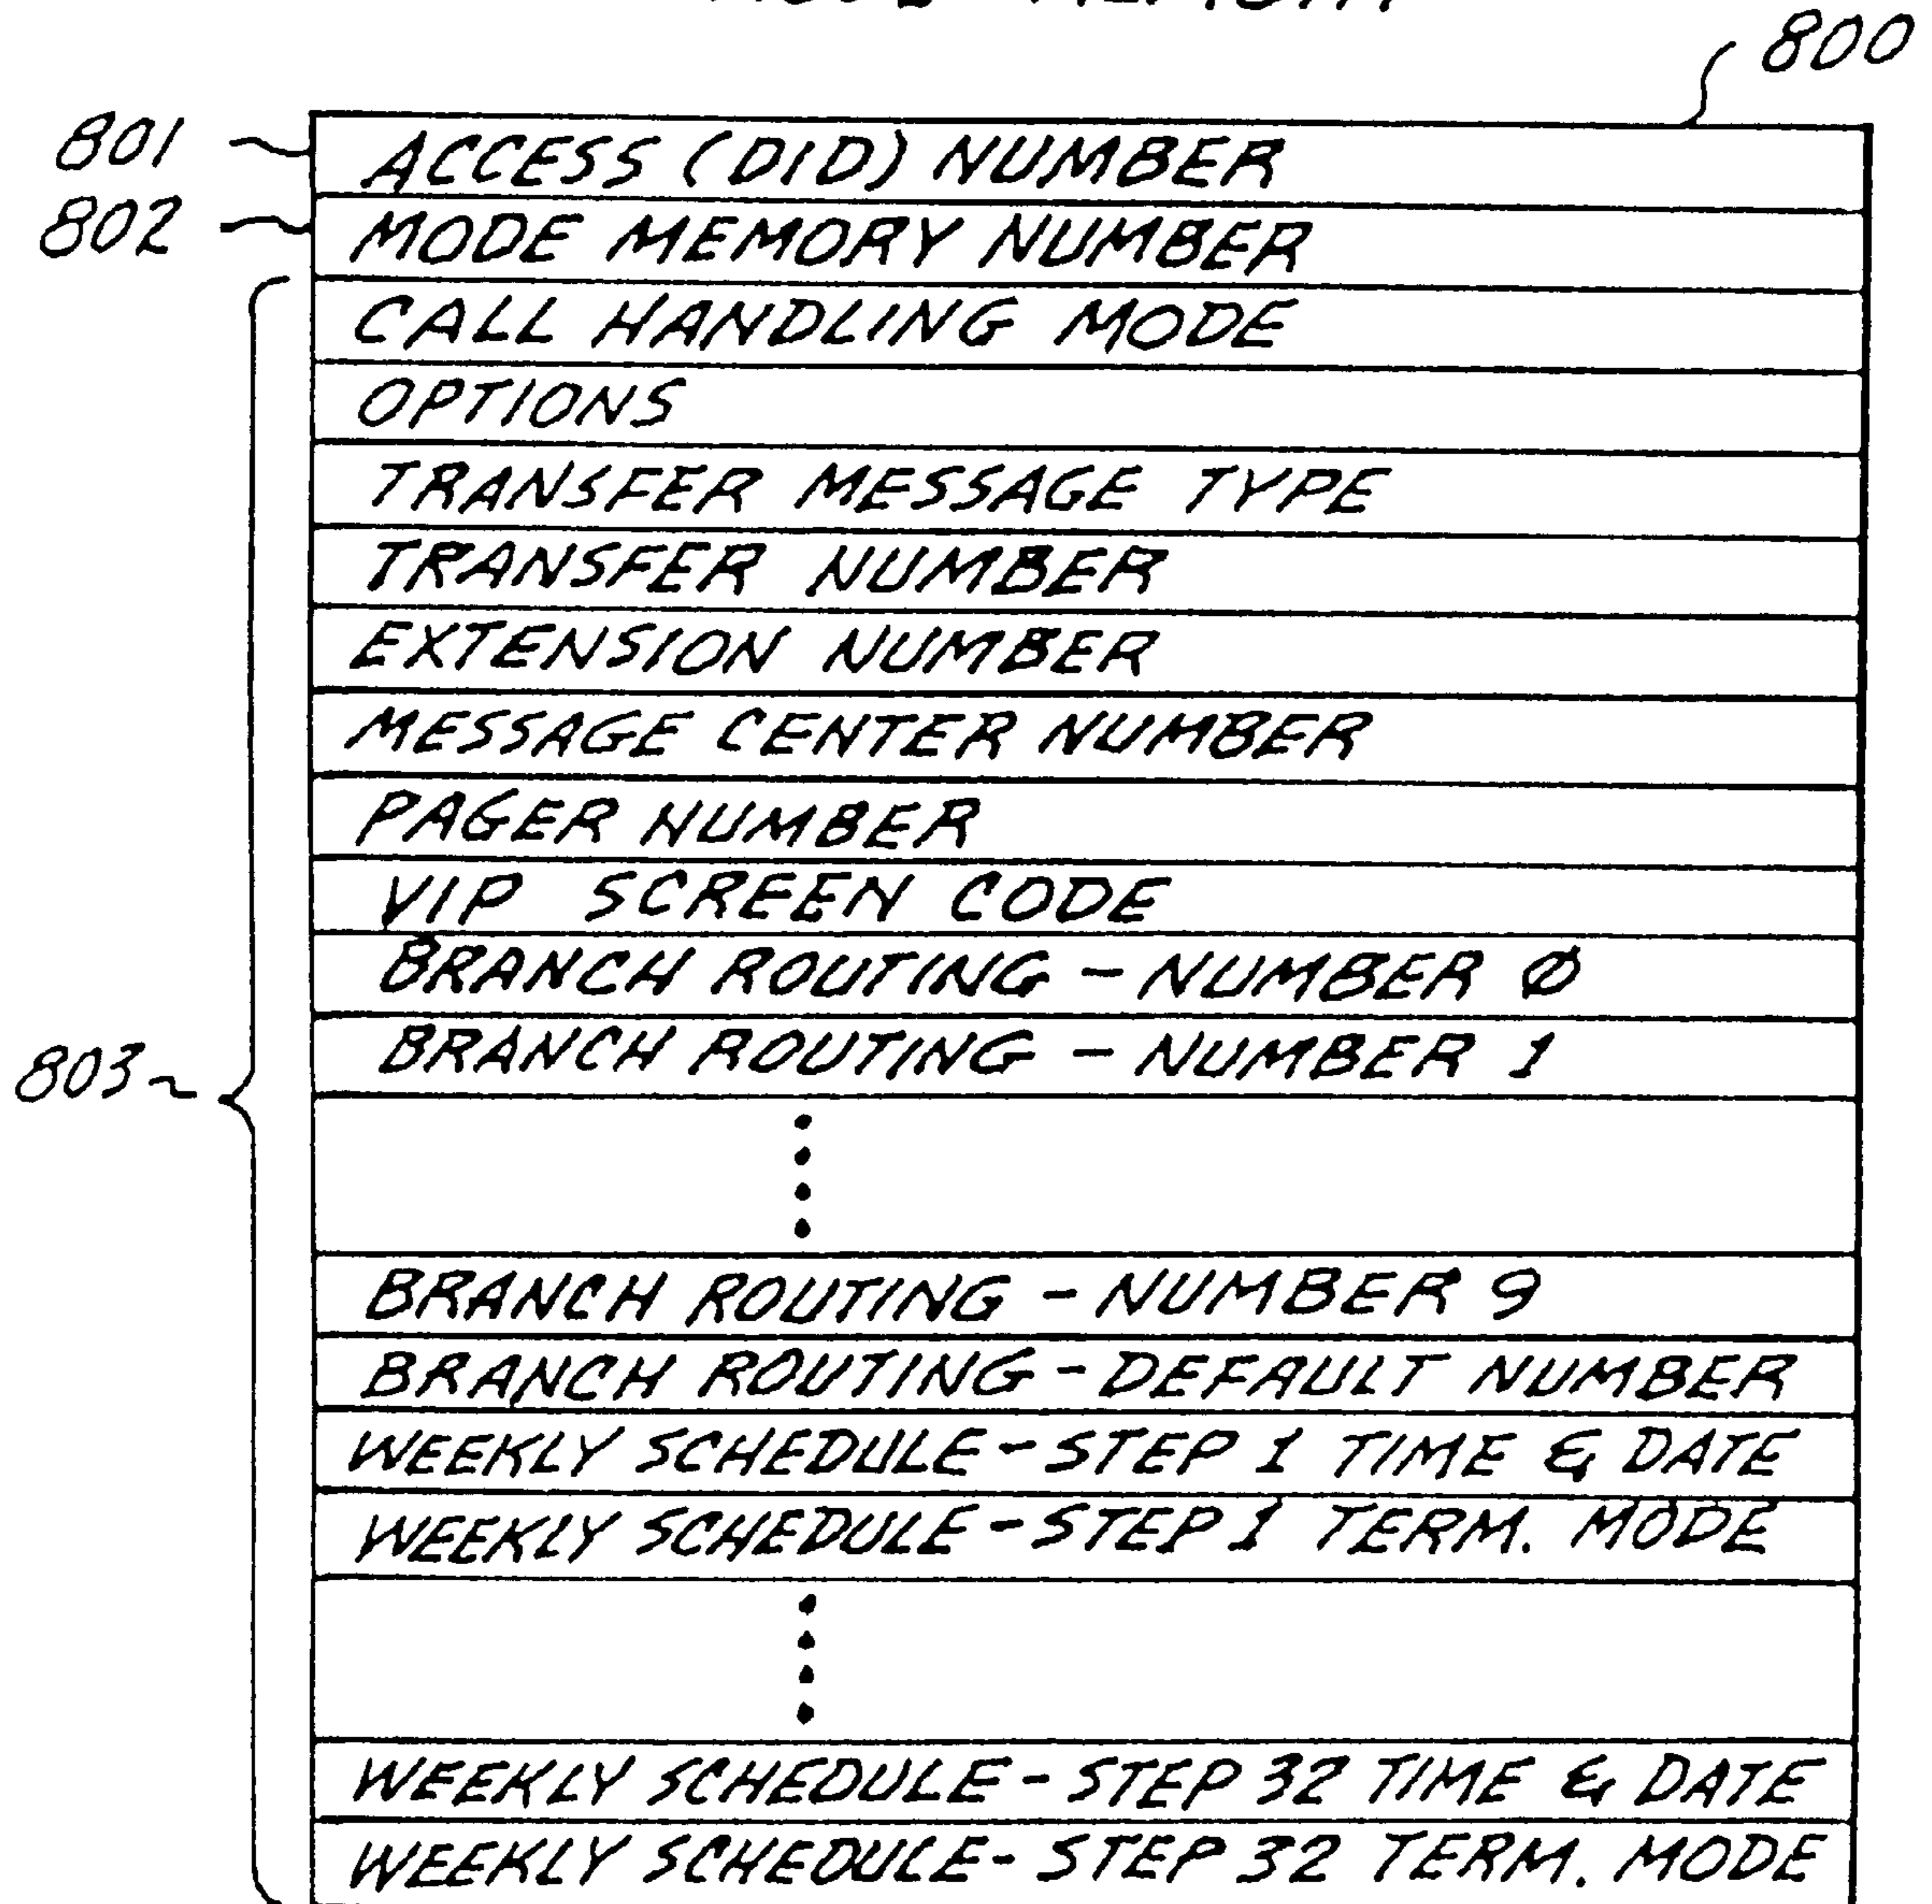 800
801 ACCESS (DID) NUMBER
802 MODE MEMORY NUMBER
CALL HANDLING MODE
OPTIONS
TRANSFER MESSAGE TYPE
TRANSFER NUMBER
EXTENSION NUMBER
MESSAGE CENTER NUMBER
PAGER NUMBER
VIP SCREEN CODE
BRANCH ROUTING - NUMBER Ø
BRANCH ROUTING - NUMBER 1
803
BRANCH ROUTING - NUMBER 9
BRANCH ROUTING - DEFAULT NUMBER
WEEKLY SCHEDULE - STEP 1 TIME & DATE
WEEKLY SCHEDULE - STEP 1 TERM. MODE
WEEKLY SCHEDULE - STEP 32 TIME & DATE
WEEKLY SCHEDULE - STEP 32 TERM. MODE